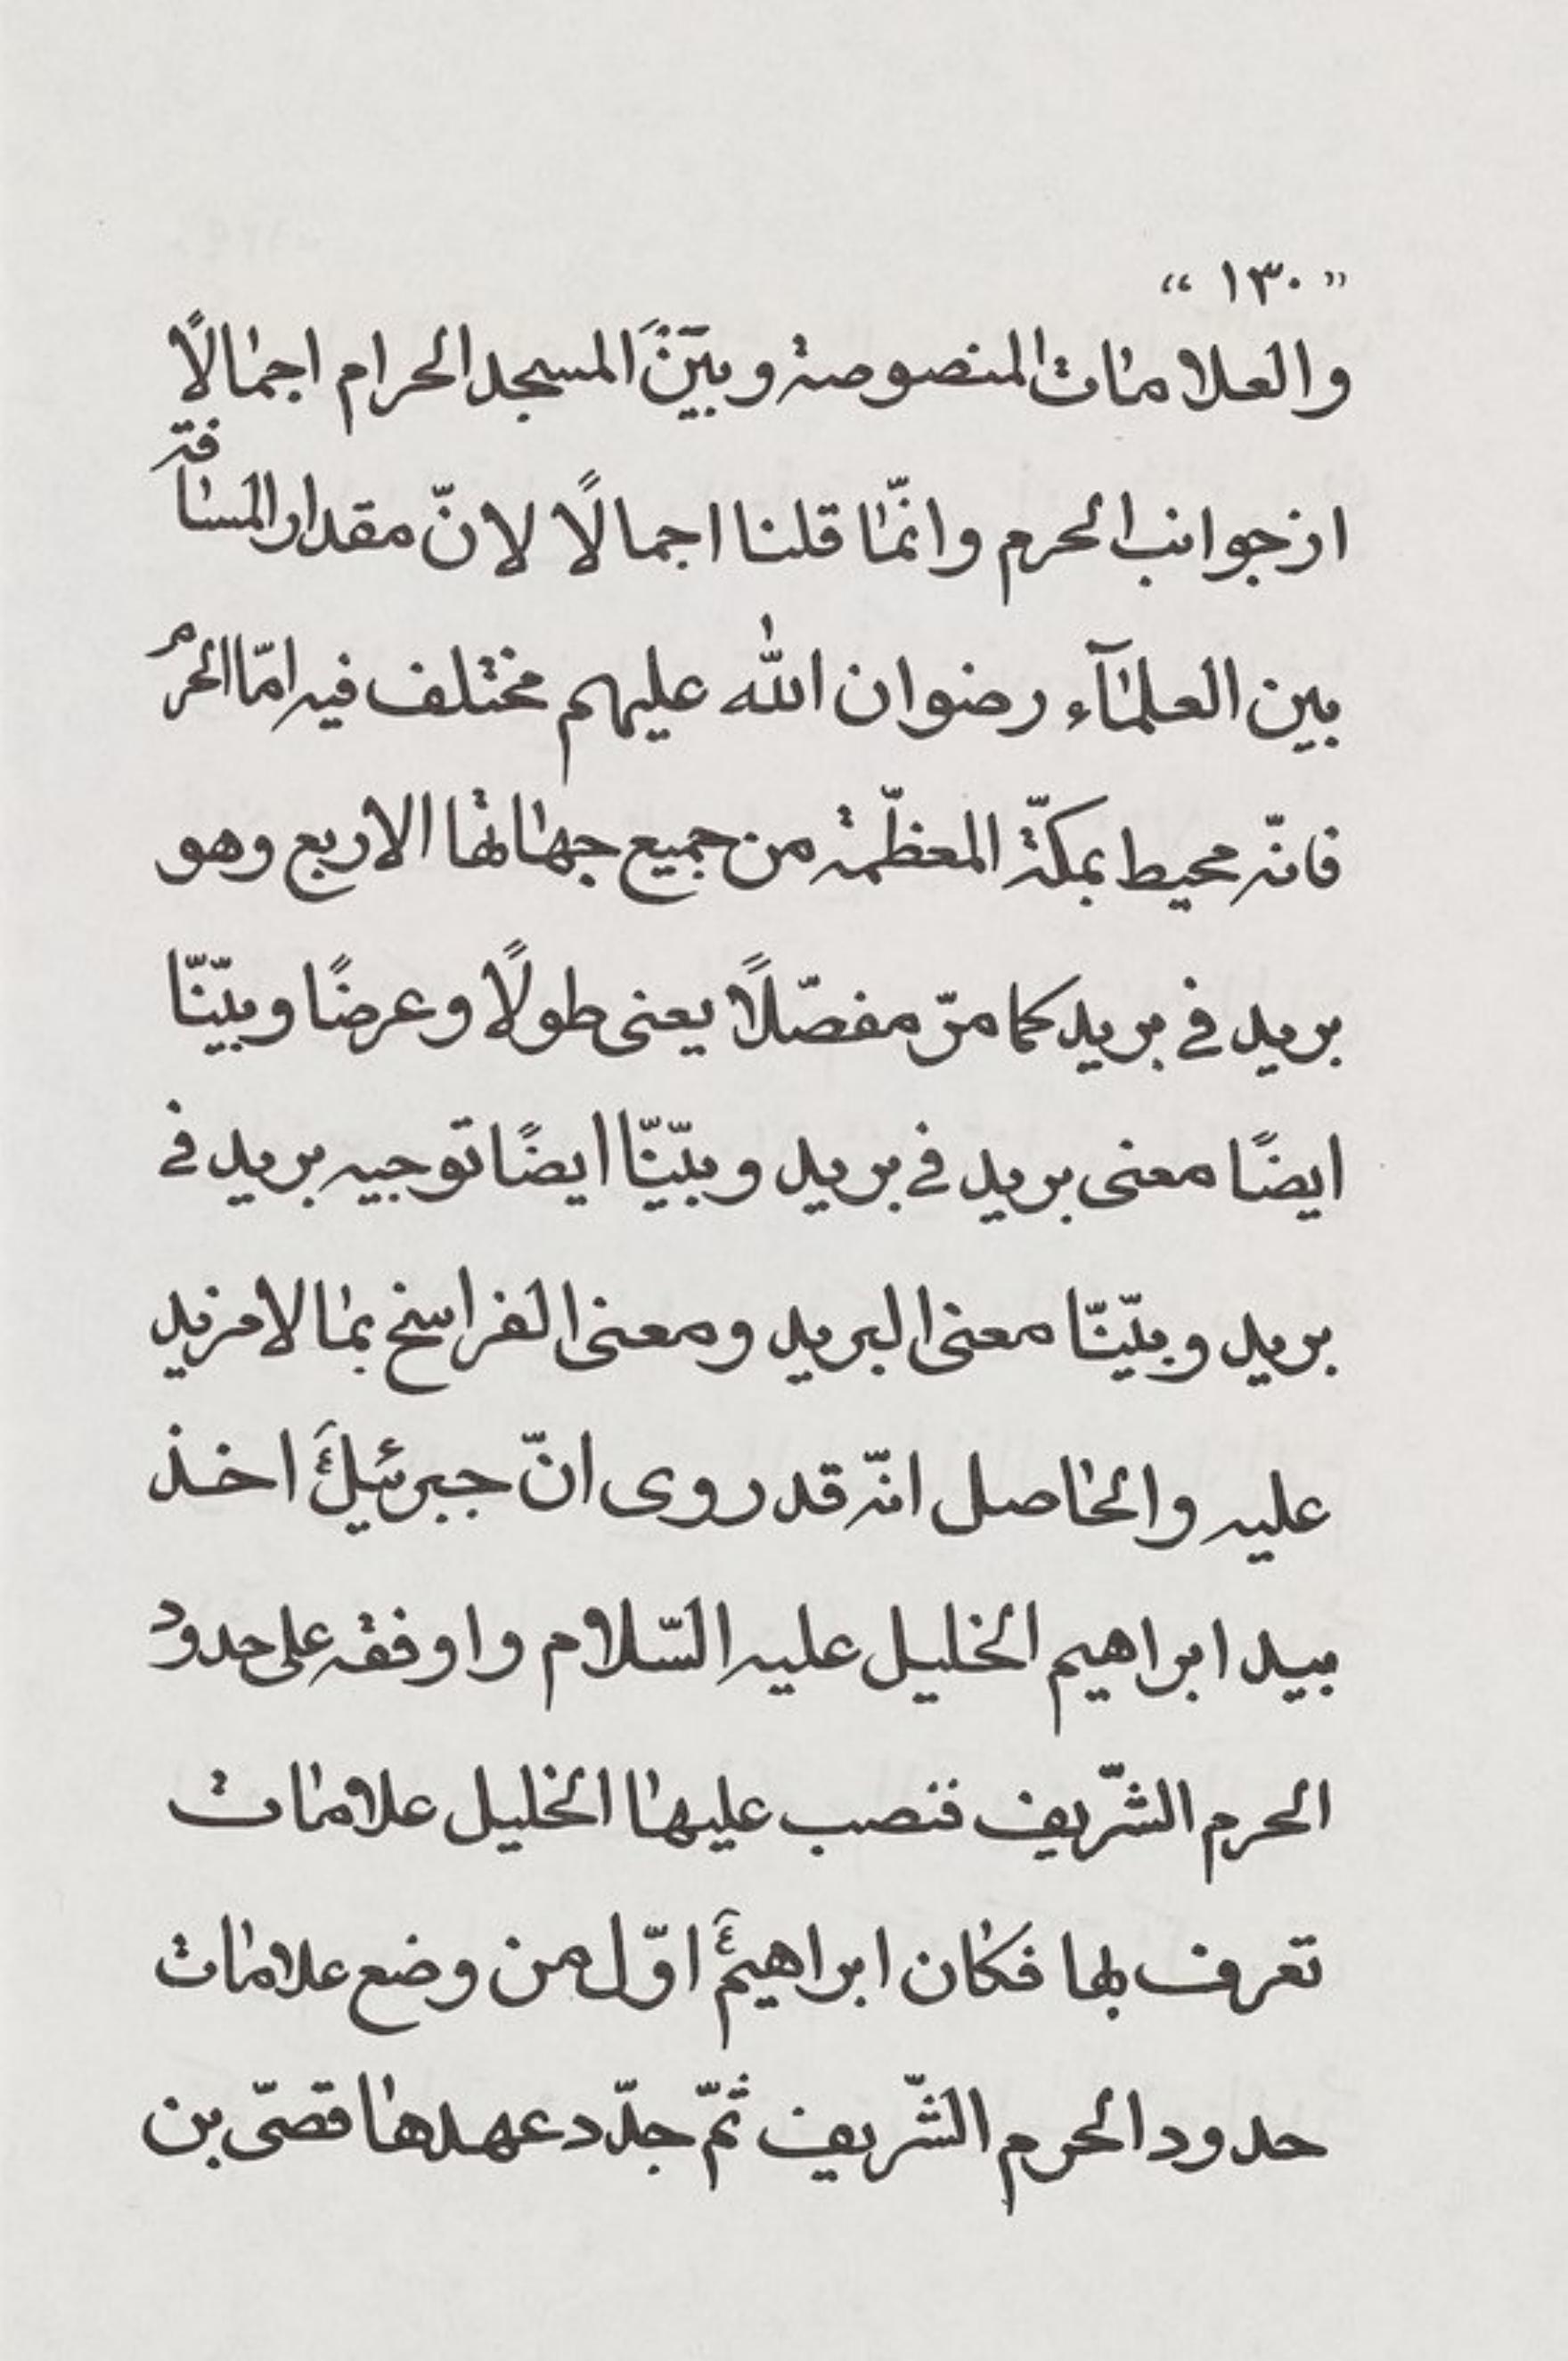 « ١٣٠ »
والعلامات المنصوصة وبَيَّنَ المسجد الحرام اجمالًا
از جوانب الحرم وانّما قلنا اجمالًا لانّ مقدار المسافة
بين العلمآء رضوان الله عليهم مختلف فيه امّا الحرم
فانّه محيط بمكّة المعظّمة من جميع جهاتها الاربع وهو
بريد في بريد كما مرّ مفصّلًا يعنى طولًا وعرضًا وبيّنّا
ايضًا معنى بريد في بريد وبيّنّا ايضًا توجيه بريد في
بريد وبيّنّا معنى البريد ومعنى الفراسخ بما لا مزيد
عليه والحاصل انّه قد روى انّ جبرئيل ع اخذ
بيد ابراهيم الخليل عليه السّلام واوفقه على حدود
الحرم الشّريف فنصب عليها الخليل علامات
تعرف بها فكان ابراهيم ع اوّل من وضع علامات
حدود الحرم الشّريف ثمّ جدّد عهدها قصىّ بن